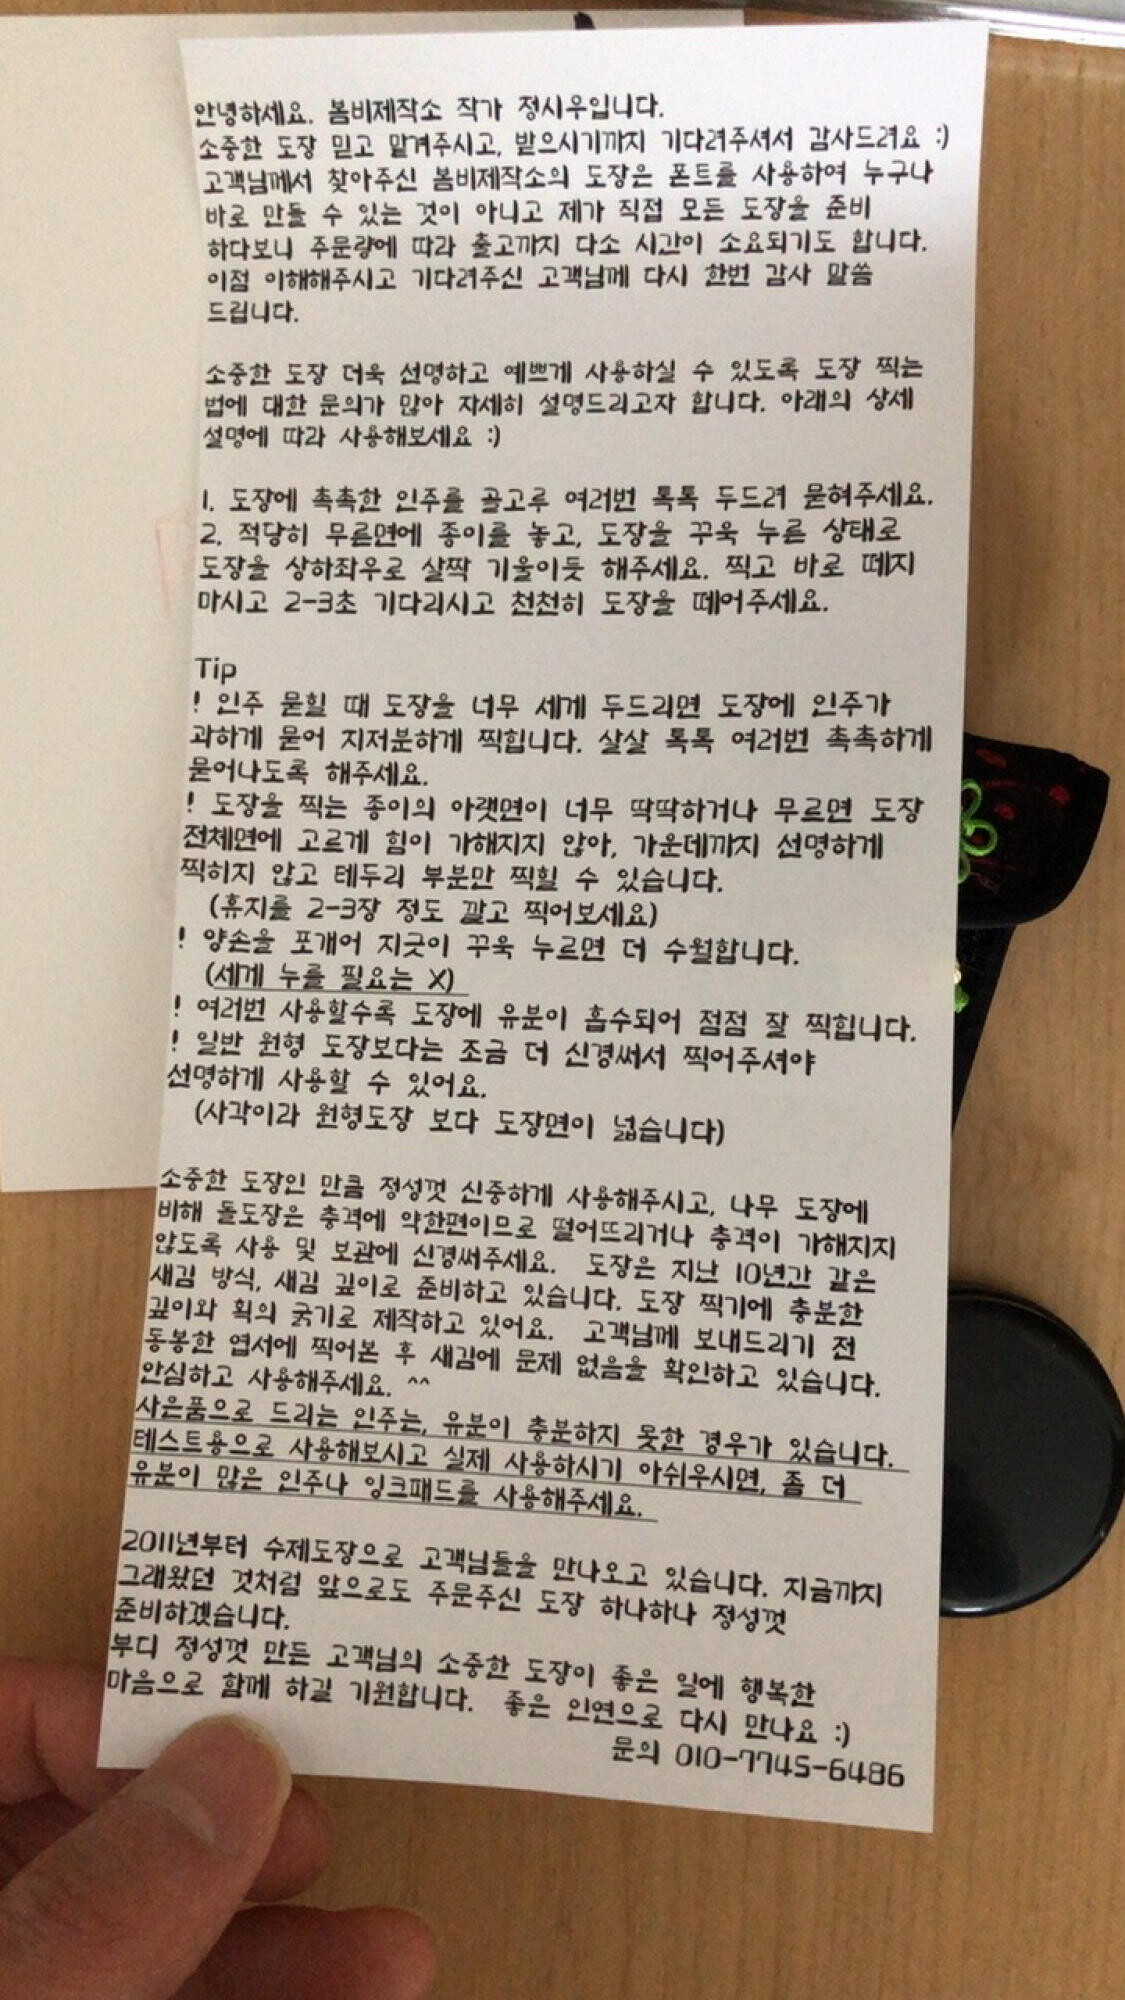 안녕하세요. 봄비제작소 작가 정시우입니다.
소중한 도장 믿고 맡겨주시고, 받으시기까지 기다려주셔서 감사드려요 :)
고객님께서 찾아주신 봄비제작소의 도장은 폰트를 사용하여 누구나
바로 만들 수 있는 것이 아니고 제가 직접 모든 도장을 준비
하다보니 주문량에 따라 출고까지 다소 시간이 소요되기도 합니다.
이점 이해해주시고 기다려주신 고객님께 다시 한번 감사 말씀
드립니다.
소중한 도장 더욱 선명하고 예쁘게 사용하실 수 있도록 도장 찍는
법에 대한 문의가 많아 자세히 설명드리고자 합니다. 아래의 상세
설명에 따라 사용해보세요 :)
1. 도장에 촉촉한 인주를 골고루 여러번 톡톡 두드려 묻혀주세요.
2. 적당히 무른면에 종이를 놓고, 도장을 꾸욱 누른 상태로
도장을 상하좌우로 살짝 기울이듯 해주세요. 찍고 바로 떼지
마시고 2-3초 기다리시고 천천히 도장을 떼어주세요.
Tip
! 인주 묻힐 때 도장을 너무 세게 두드리면 도장에 인주가
과하게 묻어 지저분하게 찍힙니다. 살살 톡톡 여러번 촉촉하게
묻어나도록 해주세요.
! 도장을 찍는 종이의 아랫면이 너무 딱딱하거나 무르면 도장
전체면에 고르게 힘이 가해지지 않아, 가운데까지 선명하게
찍히지 않고 테두리 부분만 찍힐 수 있습니다.
(휴지를 2-3장 정도 깔고 찍어보세요)
! 양손을 포개어 지긋이 꾸욱 누르면 더 수월합니다.
(세게 누를 필요는 X)
! 여러번 사용할수록 도장에 유분이 흡수되어 점점 잘 찍힙니다.
! 일반 원형 도장보다는 조금 더 신경써서 찍어주셔야
선명하게 사용할 수 있어요.
(사각이라 원형도장 보다 도장면이 넓습니다)
소중한 도장인 만큼 정성껏 신중하게 사용해주시고, 나무 도장에
비해 돌도장은 충격에 약한편이므로 떨어뜨리거나 충격이 가해지지
않도록 사용 및 보관에 신경써주세요. 도장은 지난 10년간 같은
새김 방식, 새김 깊이로 준비하고 있습니다. 도장 찍기에 충분한
깊이와 획의 굵기로 제작하고 있어요. 고객님께 보내드리기 전
동봉한 엽서에 찍어본 후 새김에 문제 없음을 확인하고 있습니다.
안심하고 사용해주세요. ^^
사은품으로 드리는 인주는, 유분이 충분하지 못한 경우가 있습니다.
테스트용으로 사용해보시고 실제 사용하시기 아쉬우시면, 좀 더
유분이 많은 인주나 잉크패드를 사용해주세요.
2011년부터 수제도장으로 고객님들을 만나오고 있습니다. 지금까지
그래왔던 것처럼 앞으로도 주문주신 도장 하나하나 정성껏
준비하겠습니다.
부디 정성껏 만든 고객님의 소중한 도장이 좋은 일에 행복한
마음으로 함께 하길 기원합니다. 좋은 인연으로 다시 만나요 :)
문의 010-7745-6486